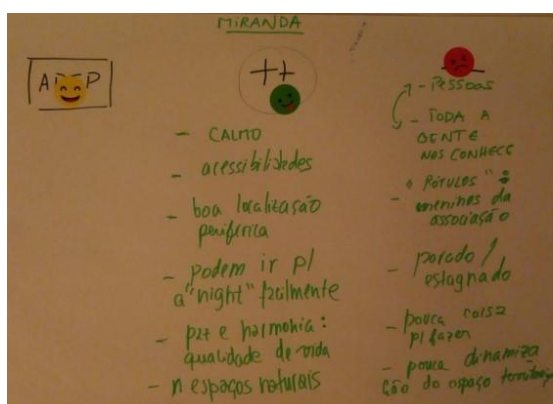 MIRANDA
A P
++
- CALMO
- acessibilidades
- boa localização
periférica
- podem ir p/
a "night" facilmente
- paz e harmonia:
qualidade de vida
- n espaços naturais
- PESSOAS
- TODA A
GENTE
NOS CONHECE
- "RÓTULOS":
meninas da
associação
- parado /
estagnado
- pouca coisa
p/ fazer
- pouca dinamiza
ção do espaço